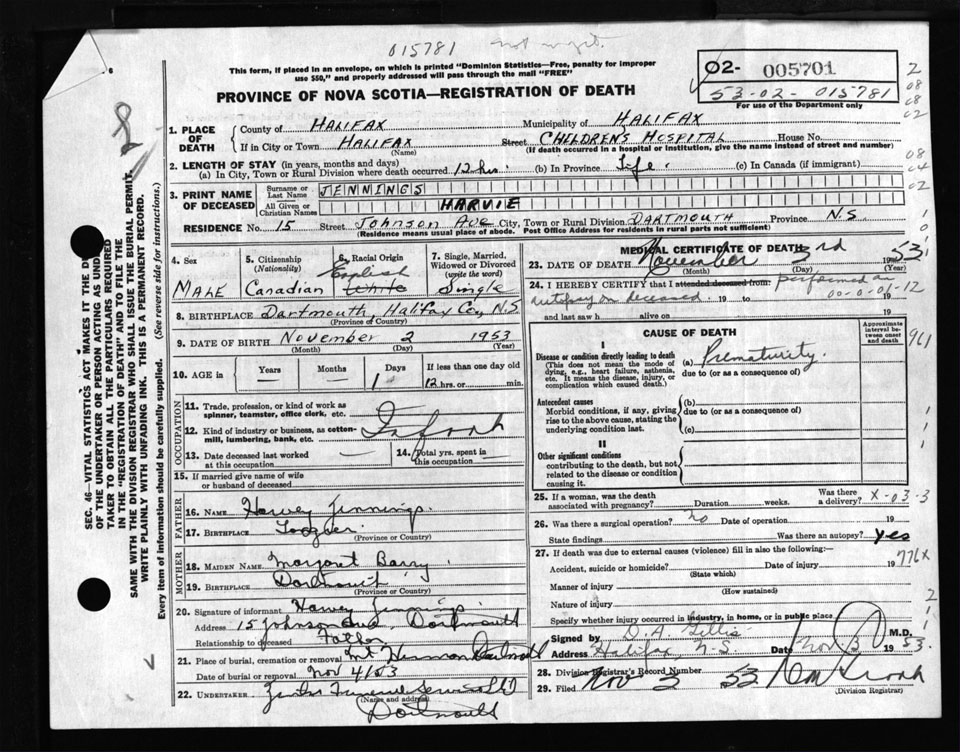 015781
This form, if placed in an envelope, on which is printed "Dominion Statistics—Free, penalty for improper
use $50," and properly addressed will pass through the mail "FREE"
PROVINCE OF NOVA SCOTIA—REGISTRATION OF DEATH
02- 005701
53-02- 015781
For use of the Department only
6
1. PLACE OF DEATH
County of HALIFAX Municipality of HALIFAX
If in City or Town HALIFAX Street CHILDREN'S HOSPITAL House No.
(Name) (If death occurred in a hospital or institution, give the name instead of street and number)
2. LENGTH OF STAY (in years, months and days)
(a) In City, Town or Rural Division where death occurred 12 hrs. (b) In Province Life. (c) In Canada (if immigrant)
3. PRINT NAME OF DECEASED
Surname or Last Name JENNINGS
All Given or Christian Names HARVIE
RESIDENCE No. 15 Street Johnson Ave City, Town or Rural Division DARTMOUTH Province N.S.
(Residence means usual place of abode. Post Office Address for residents in rural parts not sufficient)
4. Sex
MALE
5. Citizenship (Nationality)
Canadian
6. Racial Origin
English
White
7. Single, Married, Widowed or Divorced (write the word)
Single
8. BIRTHPLACE Dartmouth, Halifax Co., N.S.
(Province or Country)
9. DATE OF BIRTH November 2 1953
(Month) (Day) (Year)
10. AGE in Years Months Days If less than one day old
1 12 hrs. or min.
OCCUPATION
11. Trade, profession, or kind of work as spinner, teamster, office clerk, etc.
12. Kind of industry or business, as cotton-mill, lumbering, bank, etc. Infant
13. Date deceased last worked at this occupation
14. Total yrs. spent in this occupation
15. If married give name of wife or husband of deceased
FATHER
16. NAME Harvey Jennings.
17. BIRTHPLACE
(Province or Country)
MOTHER
18. MAIDEN NAME Margaret Barry
19. BIRTHPLACE Dartmouth
(Province or Country)
20. Signature of informant Harvey Jennings.
Address 15 Johnson Ave, Dartmouth
Relationship to deceased Father
21. Place of burial, cremation or removal Mt Herman Dartmouth
Date of burial or removal Nov 4/53
22. UNDERTAKER Funeral Service Ltd
(Name and address)
Dartmouth
MEDICAL CERTIFICATE OF DEATH
23. DATE OF DEATH November 3rd 1953.
(Month) (Day) (Year)
24. I HEREBY CERTIFY that I attended deceased from: performed an
autopsy on deceased 19 to 19
and last saw h alive on 19
CAUSE OF DEATH
Approximate interval between onset and death
I
Disease or condition directly leading to death
(This does not mean the mode of dying, e.g., heart failure, asthenia, etc. It means the disease, injury, or complication which caused death.)
(a) Prematurity.
due to (or as a consequence of)
Antecedent causes
Morbid conditions, if any, giving rise to the above cause, stating the underlying condition last.
(b)
due to (or as a consequence of)
(c)
II
Other significant conditions
contributing to the death, but not related to the disease or condition causing it.
25. If a woman, was the death associated with pregnancy? Duration weeks. Was there a delivery? X-03-3
26. Was there a surgical operation? no Date of operation 19
State findings Was there an autopsy? yes
27. If death was due to external causes (violence) fill in also the following:— 776X
Accident, suicide or homicide? Date of injury 19
(State which)
Manner of injury
(How sustained)
Nature of injury
Specify whether injury occurred in industry, in home, or in public place
Signed by D.A. Gillis M.D.
Address Halifax, N.S. Date Nov 3 1953.
28. Division Registrar's Record Number
29. Filed Nov 3 53
(Division Registrar)
SEC. 46—VITAL STATISTICS ACT MAKES IT THE
OF THE UNDERTAKER OR PERSON ACTING AS
TAKER TO OBTAIN ALL THE PARTICULARS REQUIRED
IN THE "REGISTRATION OF DEATH" AND TO FILE THE
SAME WITH THE DIVISION REGISTRAR WHO SHALL ISSUE THE BURIAL PERMIT.
WRITE PLAINLY WITH UNFADING INK. THIS IS A PERMANENT RECORD.
Every item of information should be carefully supplied. (See reverse side for instructions.)